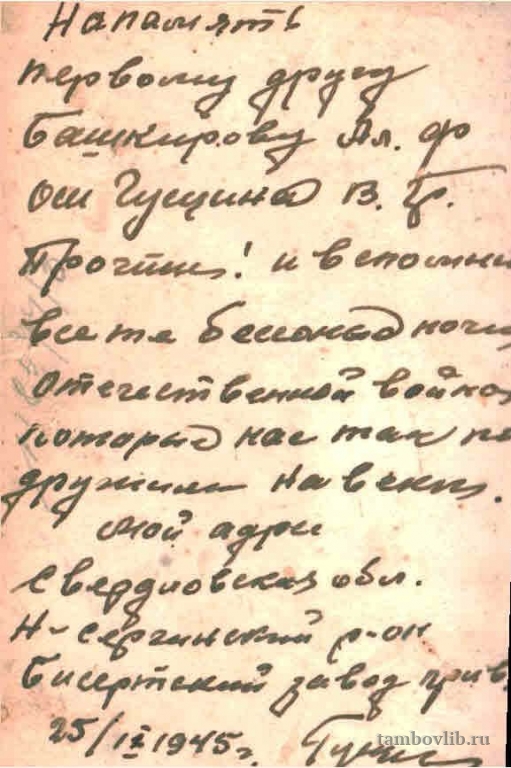 На память
первому другу
Башкирову Ал. Ф
от Гущина В. Гр.
Прочти! и вспомни
все те бессоные ночи
отечественной войны
которые нас так по
дружили на веки.
мой адрес
Свердловская обл.
Н-Сергинский р-он
Бисертский завод
25/IX 1945 г.
tambovlib.ru